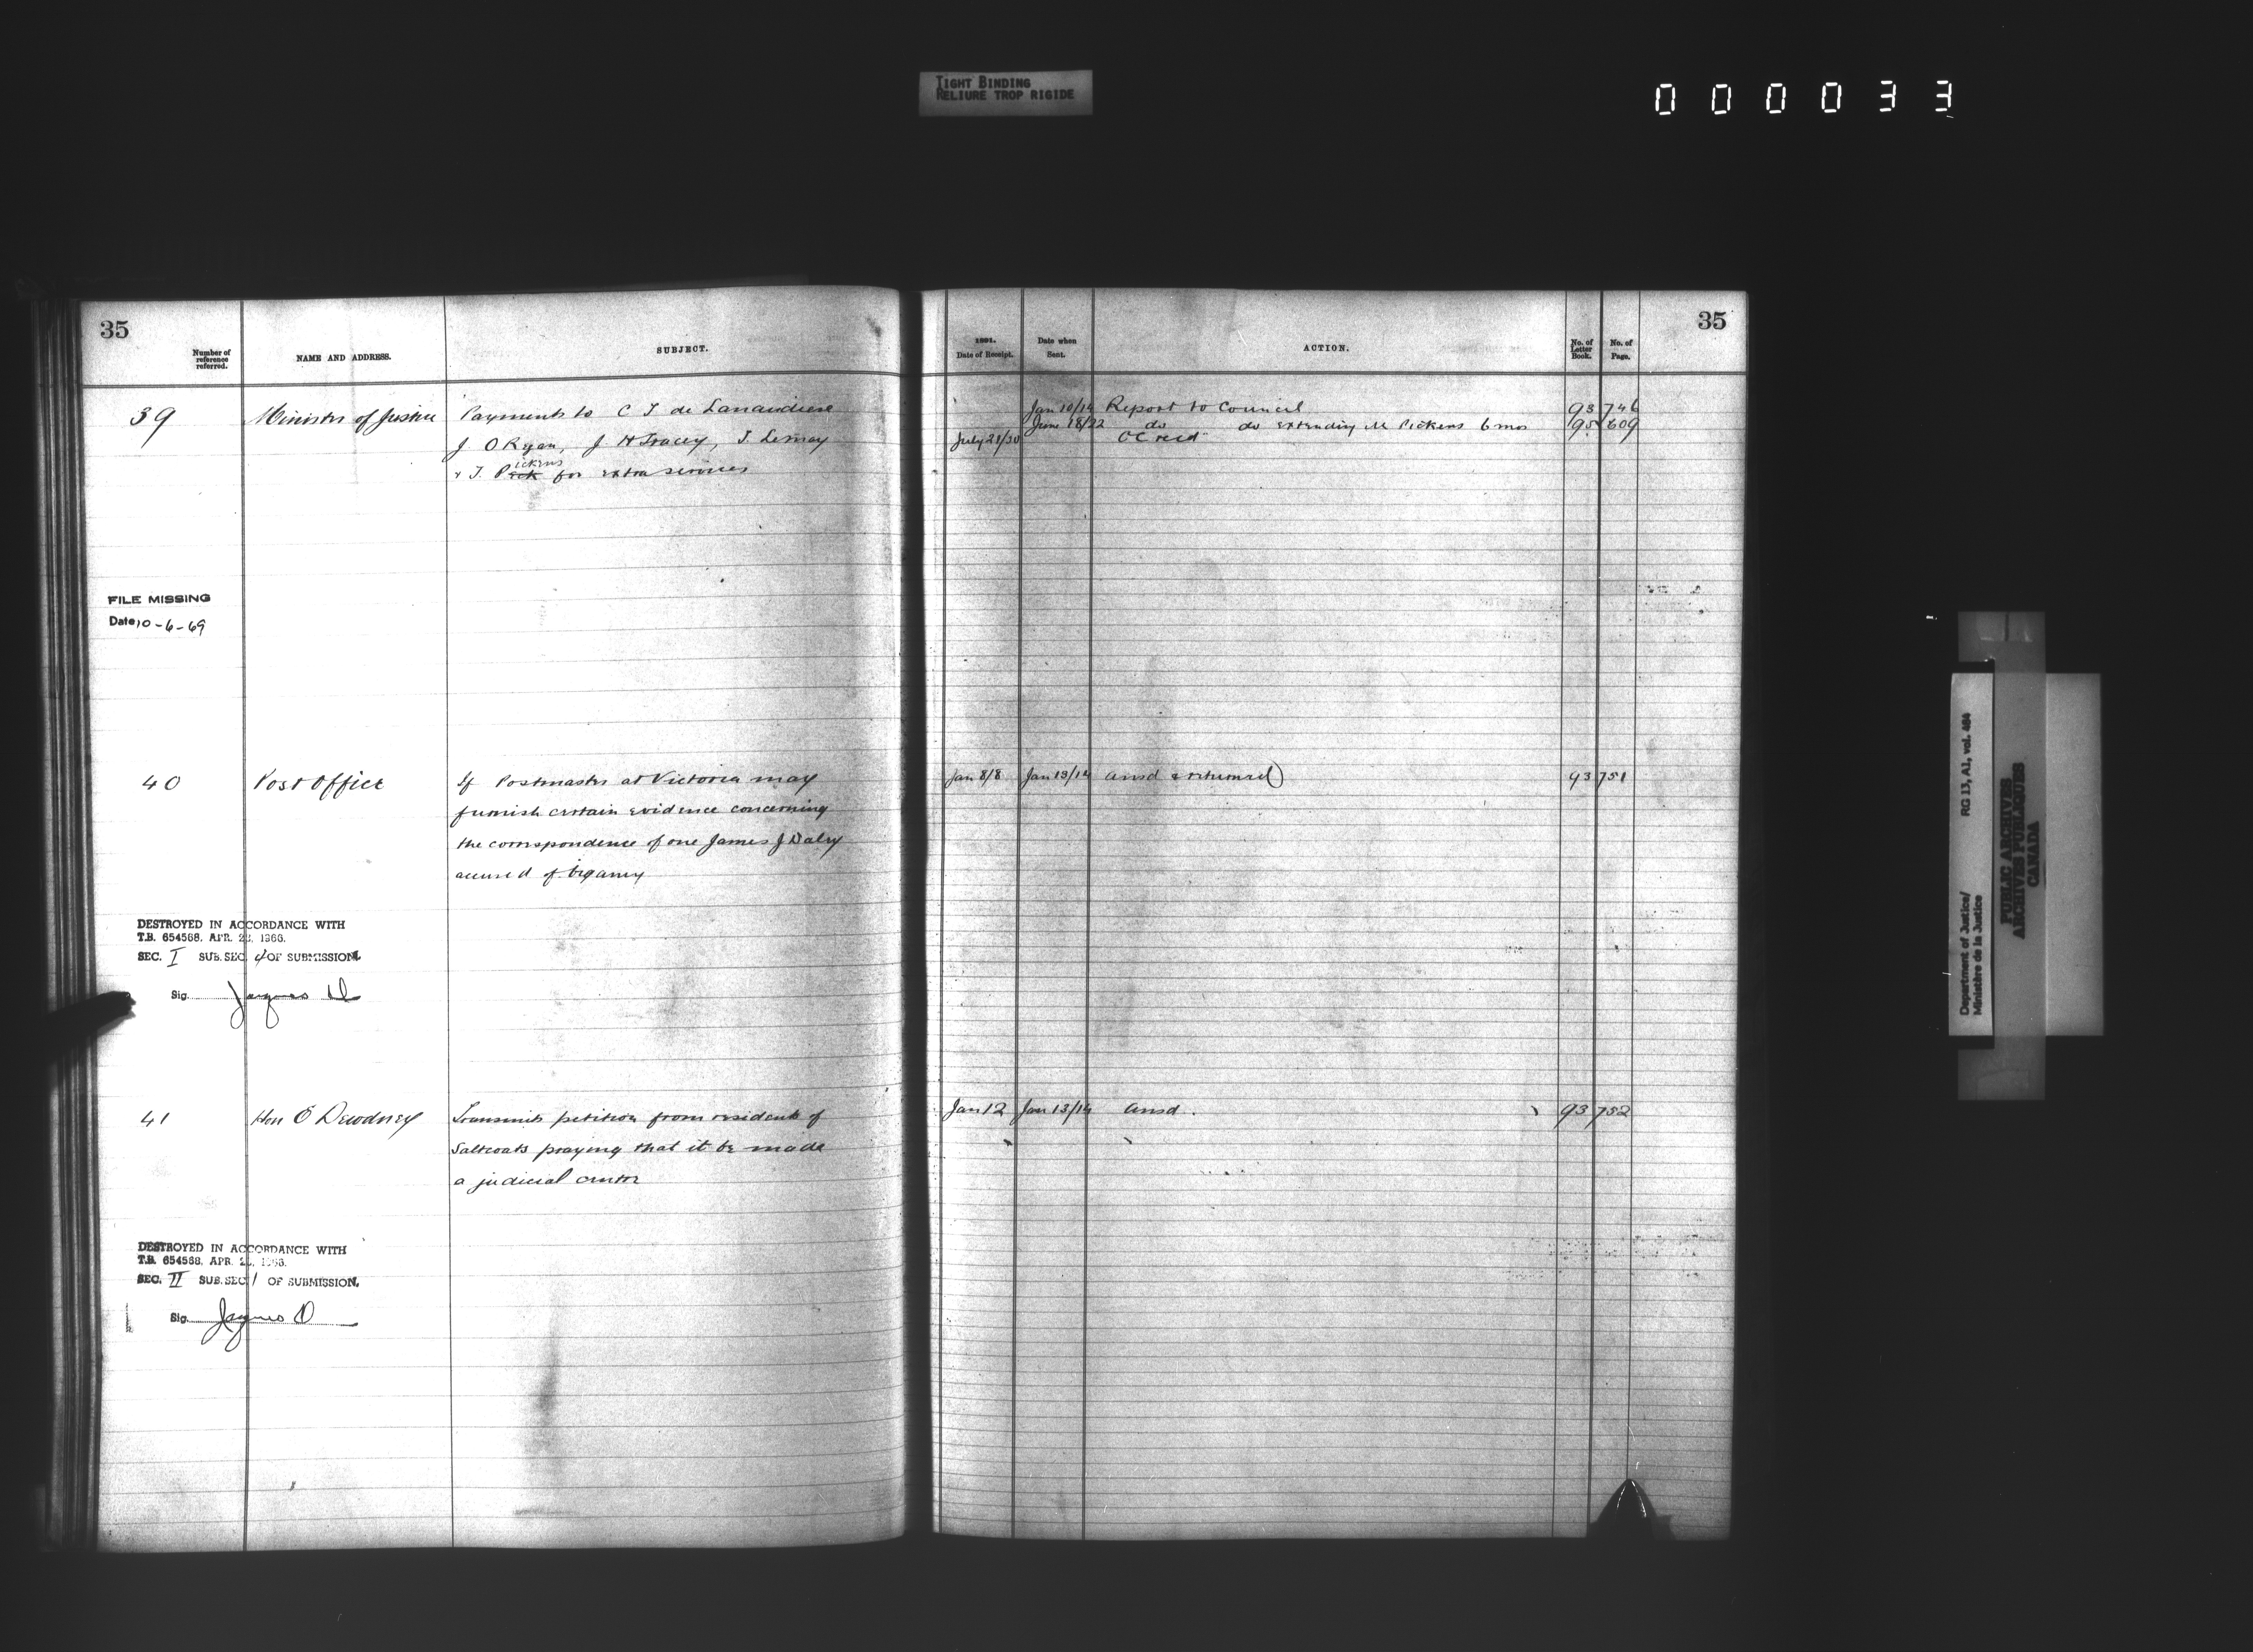 TIGHT BINDING
RELIURE TROP RIGIDE
000033
35
Number of reference referred.
NAME AND ADDRESS.
SUBJECT.
39
Minister of Justice
Payments to C T de Lanaudiere
J O Ryan, J H Tracey, T. Lemay
ickens
& T. Peck for extra services
FILE MISSING
Date 10-6-69
40
Post Office
If Postmaster at Victoria may
furnish certain evidence concerning
the correspondence of one James J Daly
accused of bigamy
DESTROYED IN ACCORDANCE WITH
T.B. 654568. APR. 22, 1966.
SEC. I SUB. SEC. 4 OF SUBMISSION.
Sig. Jacques D
41
Hon E Dewdney
Transmits petition from residents of
Saltcoats praying that it be made
a judicial center
DESTROYED IN ACCORDANCE WITH
T.B. 654568. APR. 22, 1966.
SEC. II SUB. SEC. 1 OF SUBMISSION.
Sig. Jacques D
35
1891.
Date of Receipt.
Date when Sent.
ACTION.
No. of Letter Book.
No. of Page.
Jan 10/14 Report to Council 93 746
June 18/22 do do extending M Pickens 6 mos 95 609
July 21/30 OC recd
Jan 8/8 Jan 13/14 ansd & returned) 93 751
Jan 12 Jan 13/14 ansd. 93 752
Department of Justice/
Ministère de la Justice
RG 13, A1, vol. 484
PUBLIC ARCHIVES
ARCHIVES PUBLIQUES
CANADA